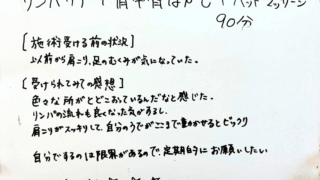 90分
[施術受ける前の状況]
以前から肩こり、足のむくみが気になっていた。
[受けられてみての感想]
色々な所がとどこおっているんだなと感じた.
リンパの流れも良くなった気がするし、
肩こりがスッキリして、自分のうでがここまで動かせるとビックリ
自分でするのは限界があるので、定期的にお願いしたい